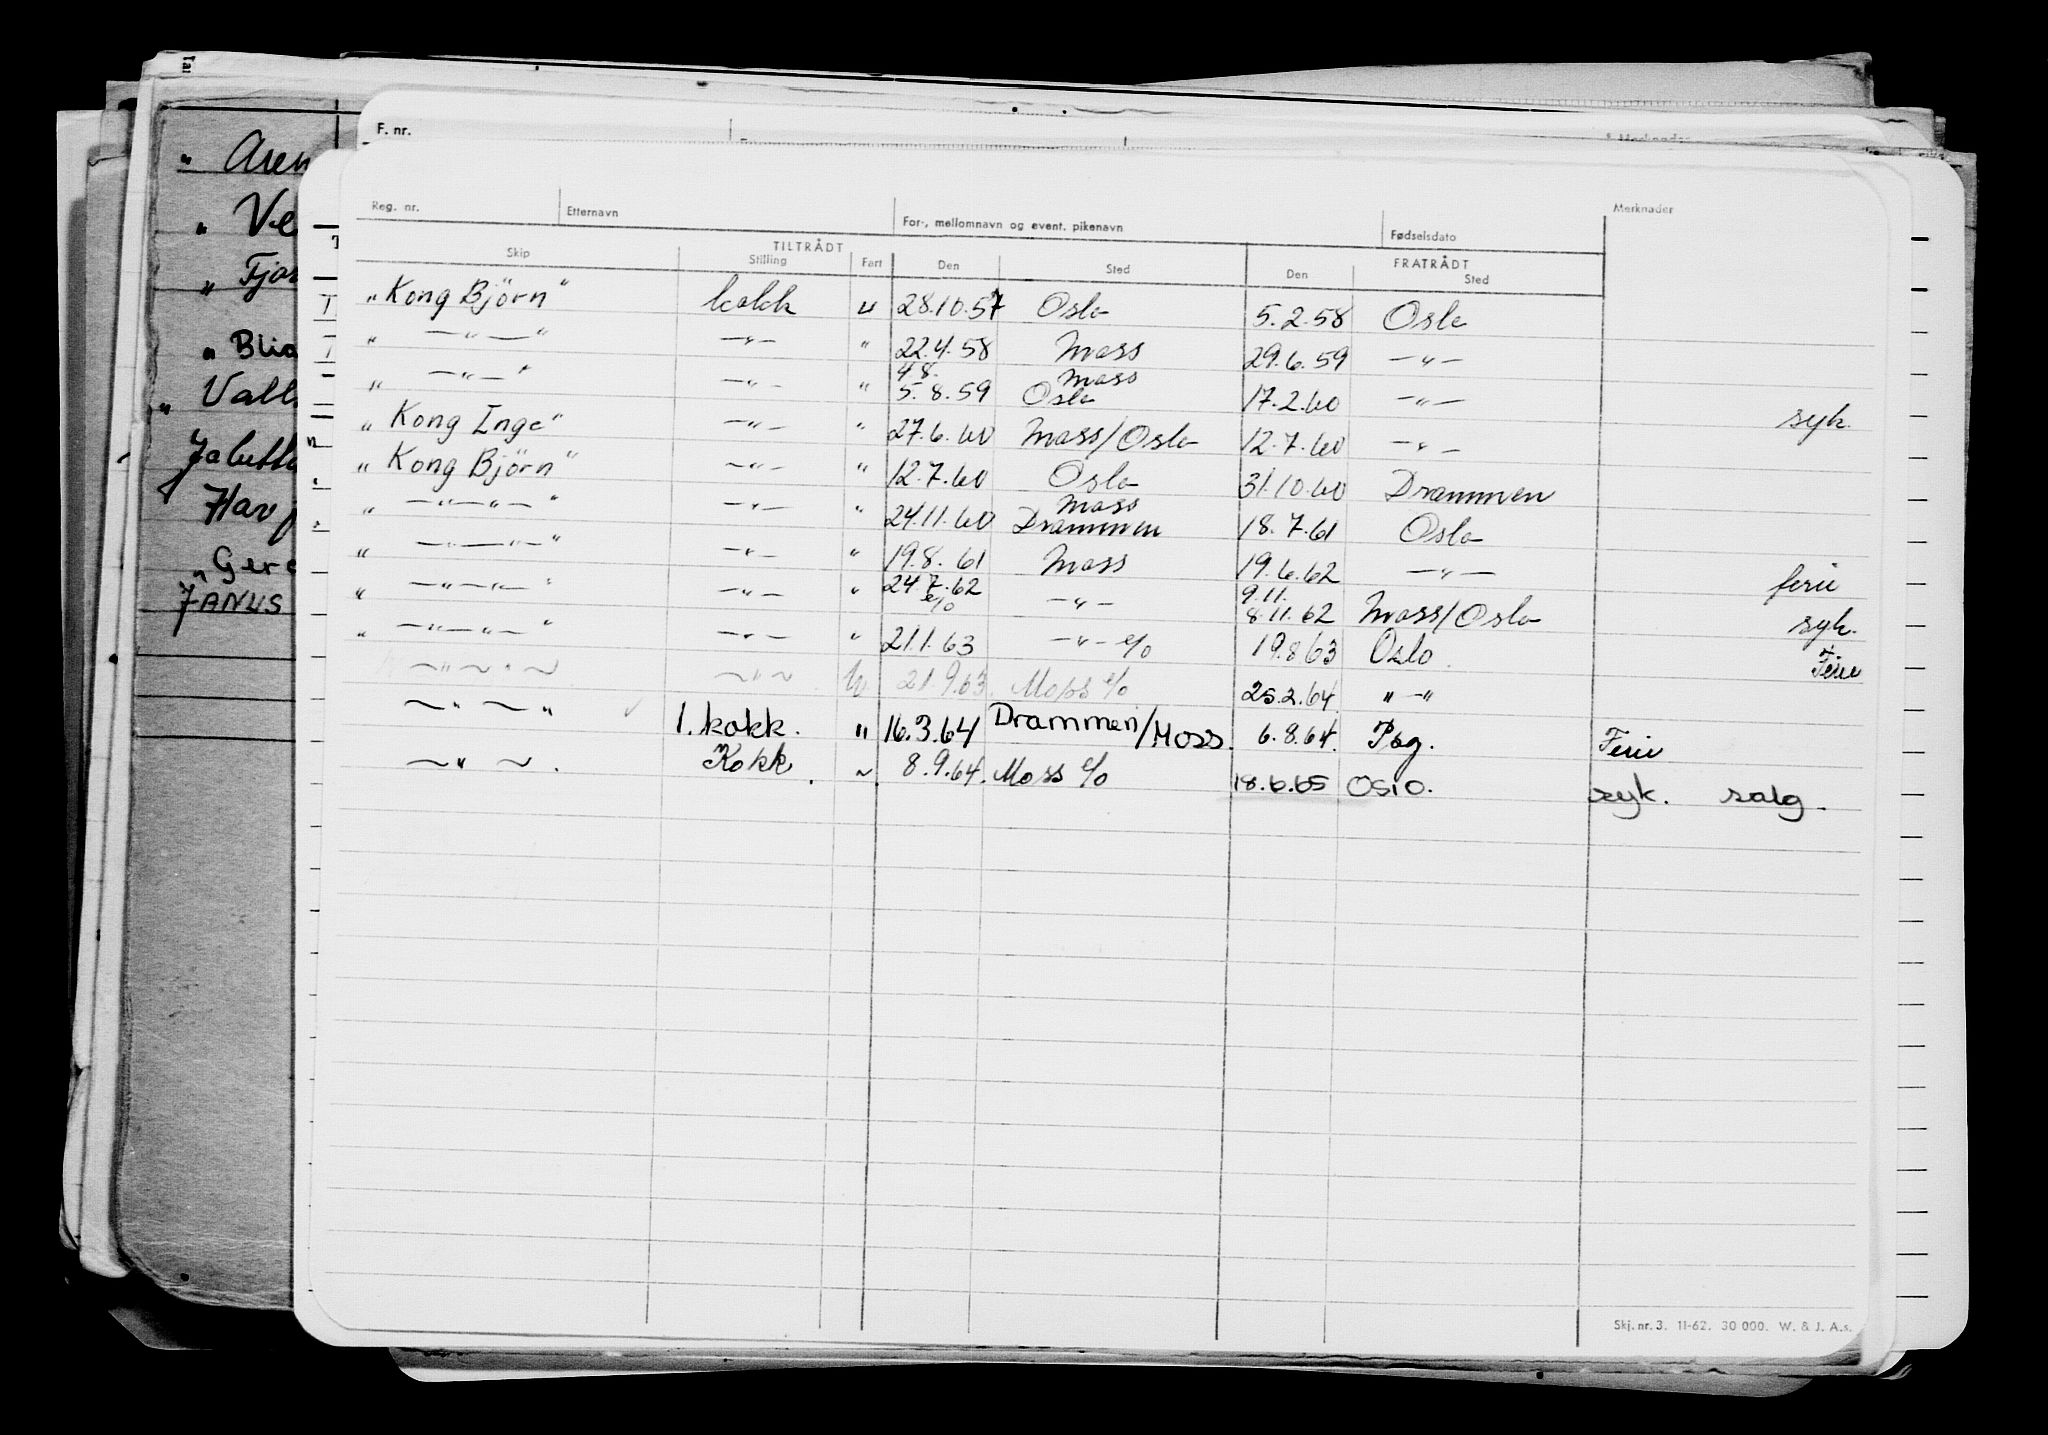 F. nr.
Merknader
Reg. nr. Etternavn For-, mellomnavn og event. pikenavn Fødselsdato Merknader
TILTRÅDT FRATRÅDT
Skip Stilling Fart Den Sted Den Sted
„Kong Björn" kokk u 28.10.57 Oslo 5.2.58 Oslo
„ —„—" —„— " 22.4.58 Moss 29.6.59 —„—
4.8. Moss
„ —„—" —„— " 5.8.59 Oslo 17.2.60 —„— syk.
„Kong Inge" —„— " 27.6.60 Moss/Oslo 12.7.60 —„—
„Kong Björn" —„— " 12.7.60 Oslo 31.10.60 Drammen
Moss
„ —„—„—" —„— " 24.11.60 Drammen 18.7.61 Oslo
„ —„—„—" —„— " 19.8.61 Moss 19.6.62 —„— ferie
9.11.
„ —„—„—" —„— " 24.7.62 e/o —„— 8.11.62 Moss/Oslo syk.
„ —„—„—" —„— " 21.1.63 —„— e/o 19.8.63 Oslo. Ferie
~„~„~ ~„~ u 21.9.63. Moss e/o 25.2.64. „—"
~„~„ 1. kokk. " 16.3.64 Drammen/Moss. 6.8.64. Pbg. Ferie
~„~. Kokk. ~ 8.9.64. Moss e/o 18.6.65 Oslo. syk. salg.
Skj. nr. 3. 11-62. 30 000. W. & J. A.s.
„ Aren
„ Ve
„ Fjor
„ Blia
„ Vall
Jalutta
Havj
„Gere
JANUS